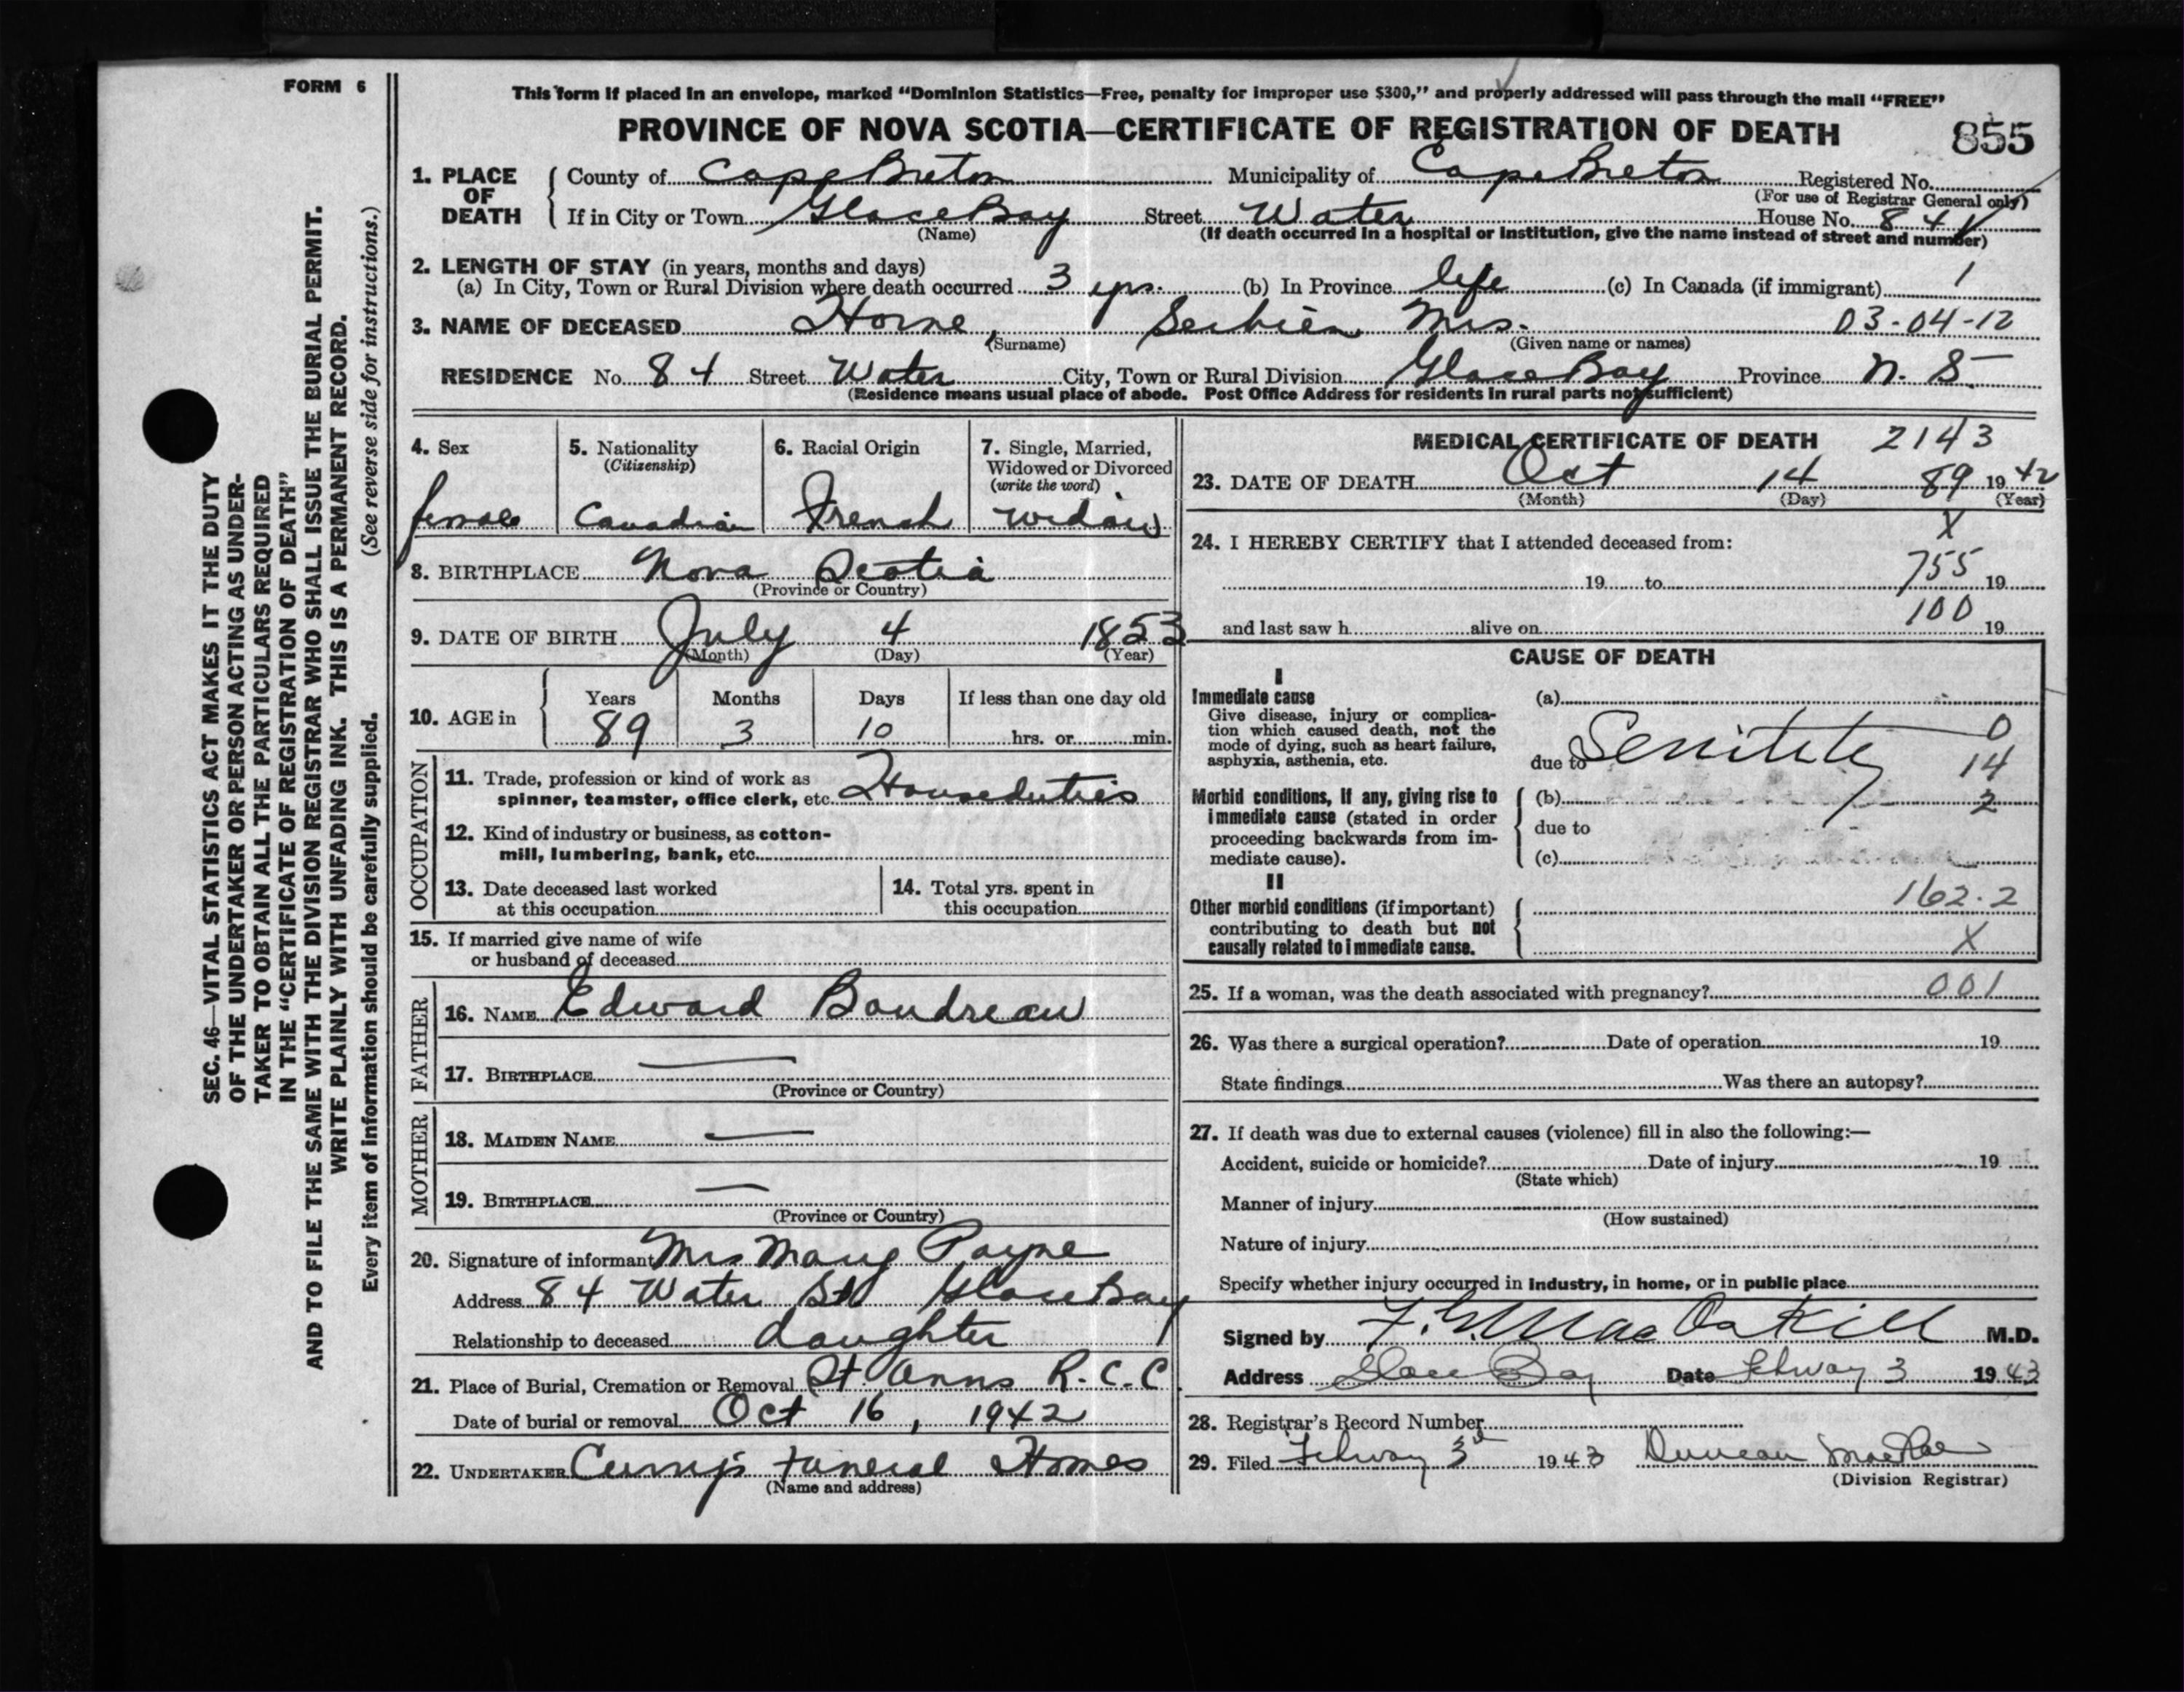 FORM 6
This form if placed in an envelope, marked “Dominion Statistics—Free, penalty for improper use $300,” and properly addressed will pass through the mail “FREE”
PROVINCE OF NOVA SCOTIA—CERTIFICATE OF REGISTRATION OF DEATH 855
1. PLACE OF DEATH County of Cape Breton Municipality of Cape Breton Registered No.
(For use of Registrar General only)
If in City or Town Glace Bay Street Water House No. 84
(Name) (If death occurred in a hospital or institution, give the name instead of street and number)
2. LENGTH OF STAY (in years, months and days)
(a) In City, Town or Rural Division where death occurred 3 yrs. (b) In Province life (c) In Canada (if immigrant) 1
3. NAME OF DECEASED Horne, Mrs. 03-04-12
(Surname) (Given name or names)
RESIDENCE No. 84 Street Water City, Town or Rural Division Glace Bay Province N. S.
(Residence means usual place of abode. Post Office Address for residents in rural parts not sufficient)
4. Sex
female
5. Nationality
(Citizenship)
Canadian
6. Racial Origin
French
7. Single, Married,
Widowed or Divorced
(write the word)
Widow
8. BIRTHPLACE Nova Scotia
(Province or Country)
9. DATE OF BIRTH July 4 1853
(Month) (Day) (Year)
10. AGE in Years Months Days If less than one day old
89 3 10 hrs. or min.
OCCUPATION
11. Trade, profession or kind of work as
spinner, teamster, office clerk, etc. Houseduties
12. Kind of industry or business, as cotton-
mill, lumbering, bank, etc.
13. Date deceased last worked
at this occupation
14. Total yrs. spent in
this occupation
15. If married give name of wife
or husband of deceased
FATHER
16. NAME Edward Boudreau
17. BIRTHPLACE —
(Province or Country)
MOTHER
18. MAIDEN NAME —
19. BIRTHPLACE —
(Province or Country)
20. Signature of informant Mrs Mary Payne
Address 84 Water St Glace Bay
Relationship to deceased daughter
21. Place of Burial, Cremation or Removal St. Anns R. C. C.
Date of burial or removal Oct 16, 1942
22. UNDERTAKER Curry's Funeral Homes
(Name and address)
MEDICAL CERTIFICATE OF DEATH 2143
23. DATE OF DEATH Oct 14 89 1942
(Month) (Day) (Year)
X
24. I HEREBY CERTIFY that I attended deceased from:
19 to 755 19
100
and last saw h alive on 19
CAUSE OF DEATH
I
Immediate cause
Give disease, injury or complica-
tion which caused death, not the
mode of dying, such as heart failure,
asphyxia, asthenia, etc.
(a)
due to Senility
0
14
2
Morbid conditions, if any, giving rise to
immediate cause (stated in order
proceeding backwards from im-
mediate cause).
(b)
due to
(c)
II
162.2
Other morbid conditions (if important)
contributing to death but not
causally related to immediate cause.
X
25. If a woman, was the death associated with pregnancy? 001
26. Was there a surgical operation? Date of operation 19
State findings Was there an autopsy?
27. If death was due to external causes (violence) fill in also the following:—
Accident, suicide or homicide? Date of injury 19
(State which)
Manner of injury
(How sustained)
Nature of injury
Specify whether injury occurred in industry, in home, or in public place
Signed by M.D.
Address Glace Bay Date 3 1943
28. Registrar's Record Number
29. Filed 3rd 1943 Duncan MacRae
(Division Registrar)
SEC. 46—VITAL STATISTICS ACT MAKES IT THE DUTY
OF THE UNDERTAKER OR PERSON ACTING AS UNDER-
TAKER TO OBTAIN ALL THE PARTICULARS REQUIRED
IN THE “CERTIFICATE OF REGISTRATION OF DEATH”
AND TO FILE THE SAME WITH THE DIVISION REGISTRAR WHO SHALL ISSUE THE BURIAL PERMIT.
WRITE PLAINLY WITH UNFADING INK. THIS IS A PERMANENT RECORD.
Every item of information should be carefully supplied. (See reverse side for instructions.)